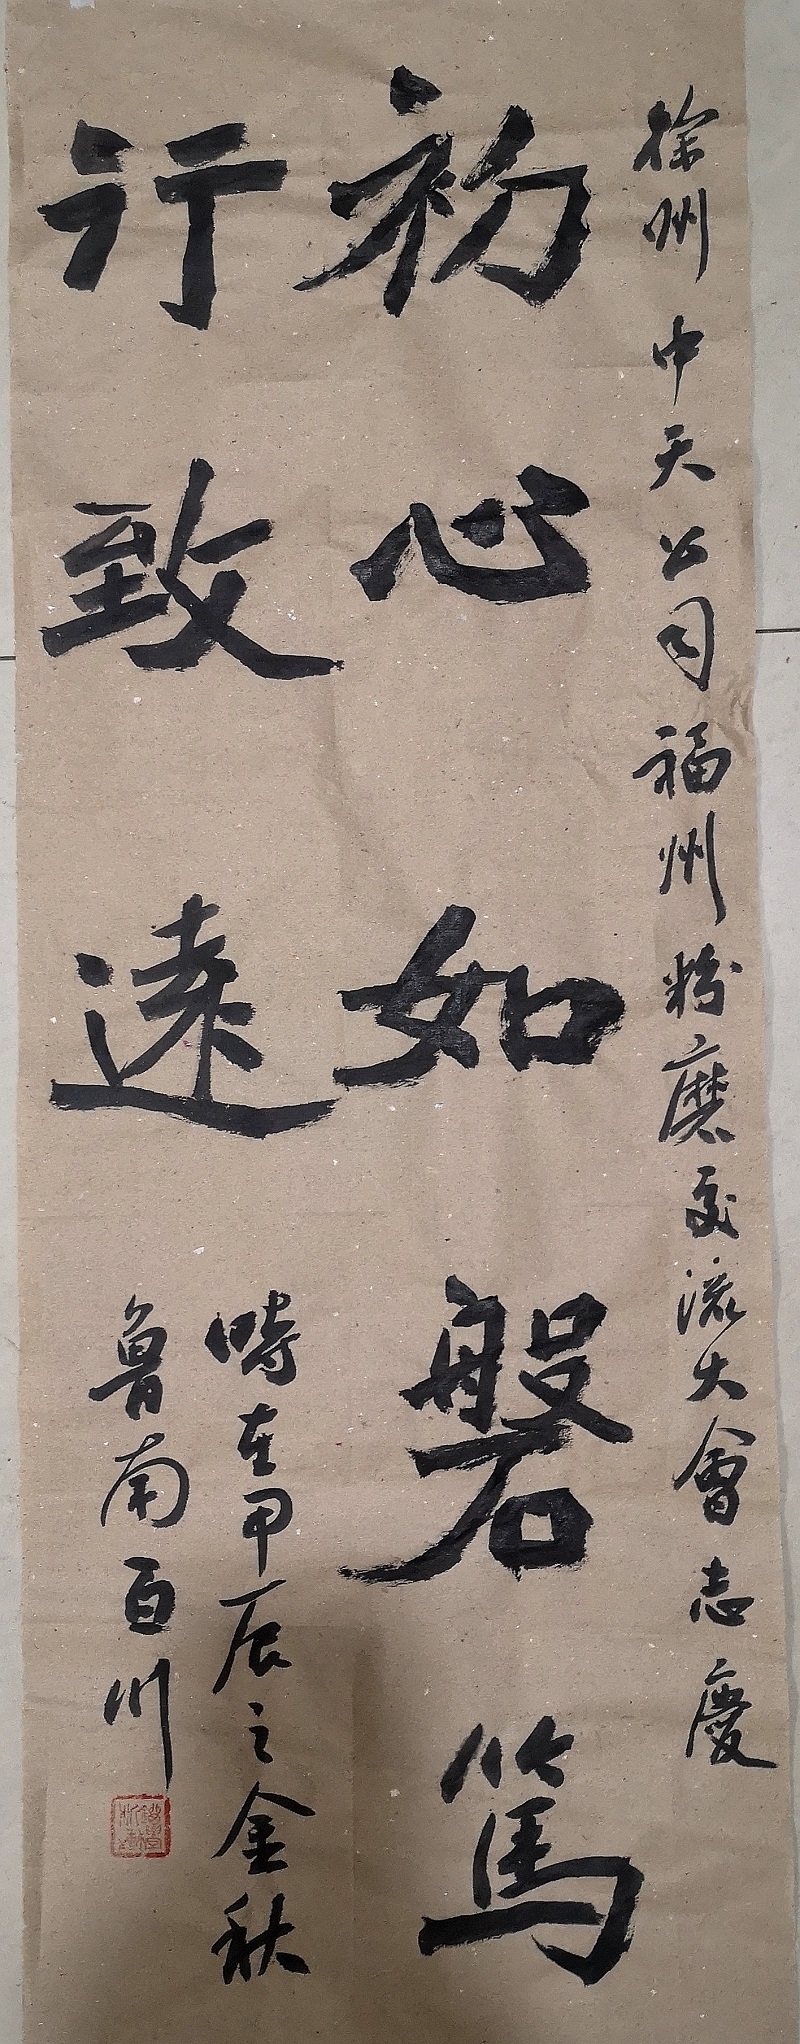 徐州中天公司福州粉磨交流大會志慶
初心如磐篤
行致遠
時在甲辰之金秋
魯南百川